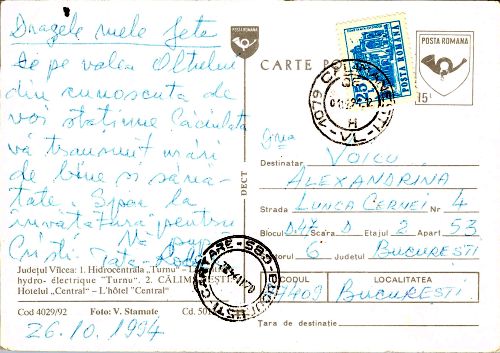 Dragele mele fete
de pe valea Oltului
din cunoscuta de
voi stațiune Căciulata
vă transmit urări
de bine și sănă-
tate. Spor la
învățătură pentru
Cristi. Vă pup
tata
Județul Vîlcea: 1. Hidrocentrala „Turnu”
hydro-électrique "Turnu". 2. CĂLIMĂNEȘTI
Hotelul „Central” – L'hôtel "Central"
Cod 4029/92 Foto: V. Stamate Cd.
26.10.1994
DECT
CARTE
POSTA ROMANA
15 L
POSTA ROMANA
25
VL
Destinatar VOICU
ALEXANDRINA
Strada LUNCA CERNEI Nr. 4
Blocul D47 Scara D Etajul 2 Apart 53
6 Județul BUCUREȘTI
CODUL LOCALITATEA
77409 BUCUREȘTI
Taxa de destinație
CARTARE